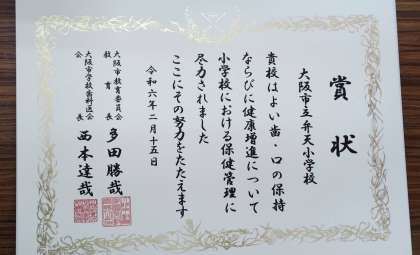 賞状
大阪市立弁天小学校
貴校はよい歯・口の保持
ならびに健康増進について
小学校における保健管理に
尽力されました
ここにその努力をたたえます
令和六年二月十五日
大阪市教育委員会
教育長 多田勝哉
大阪市学校歯科医会
会長 西本達哉